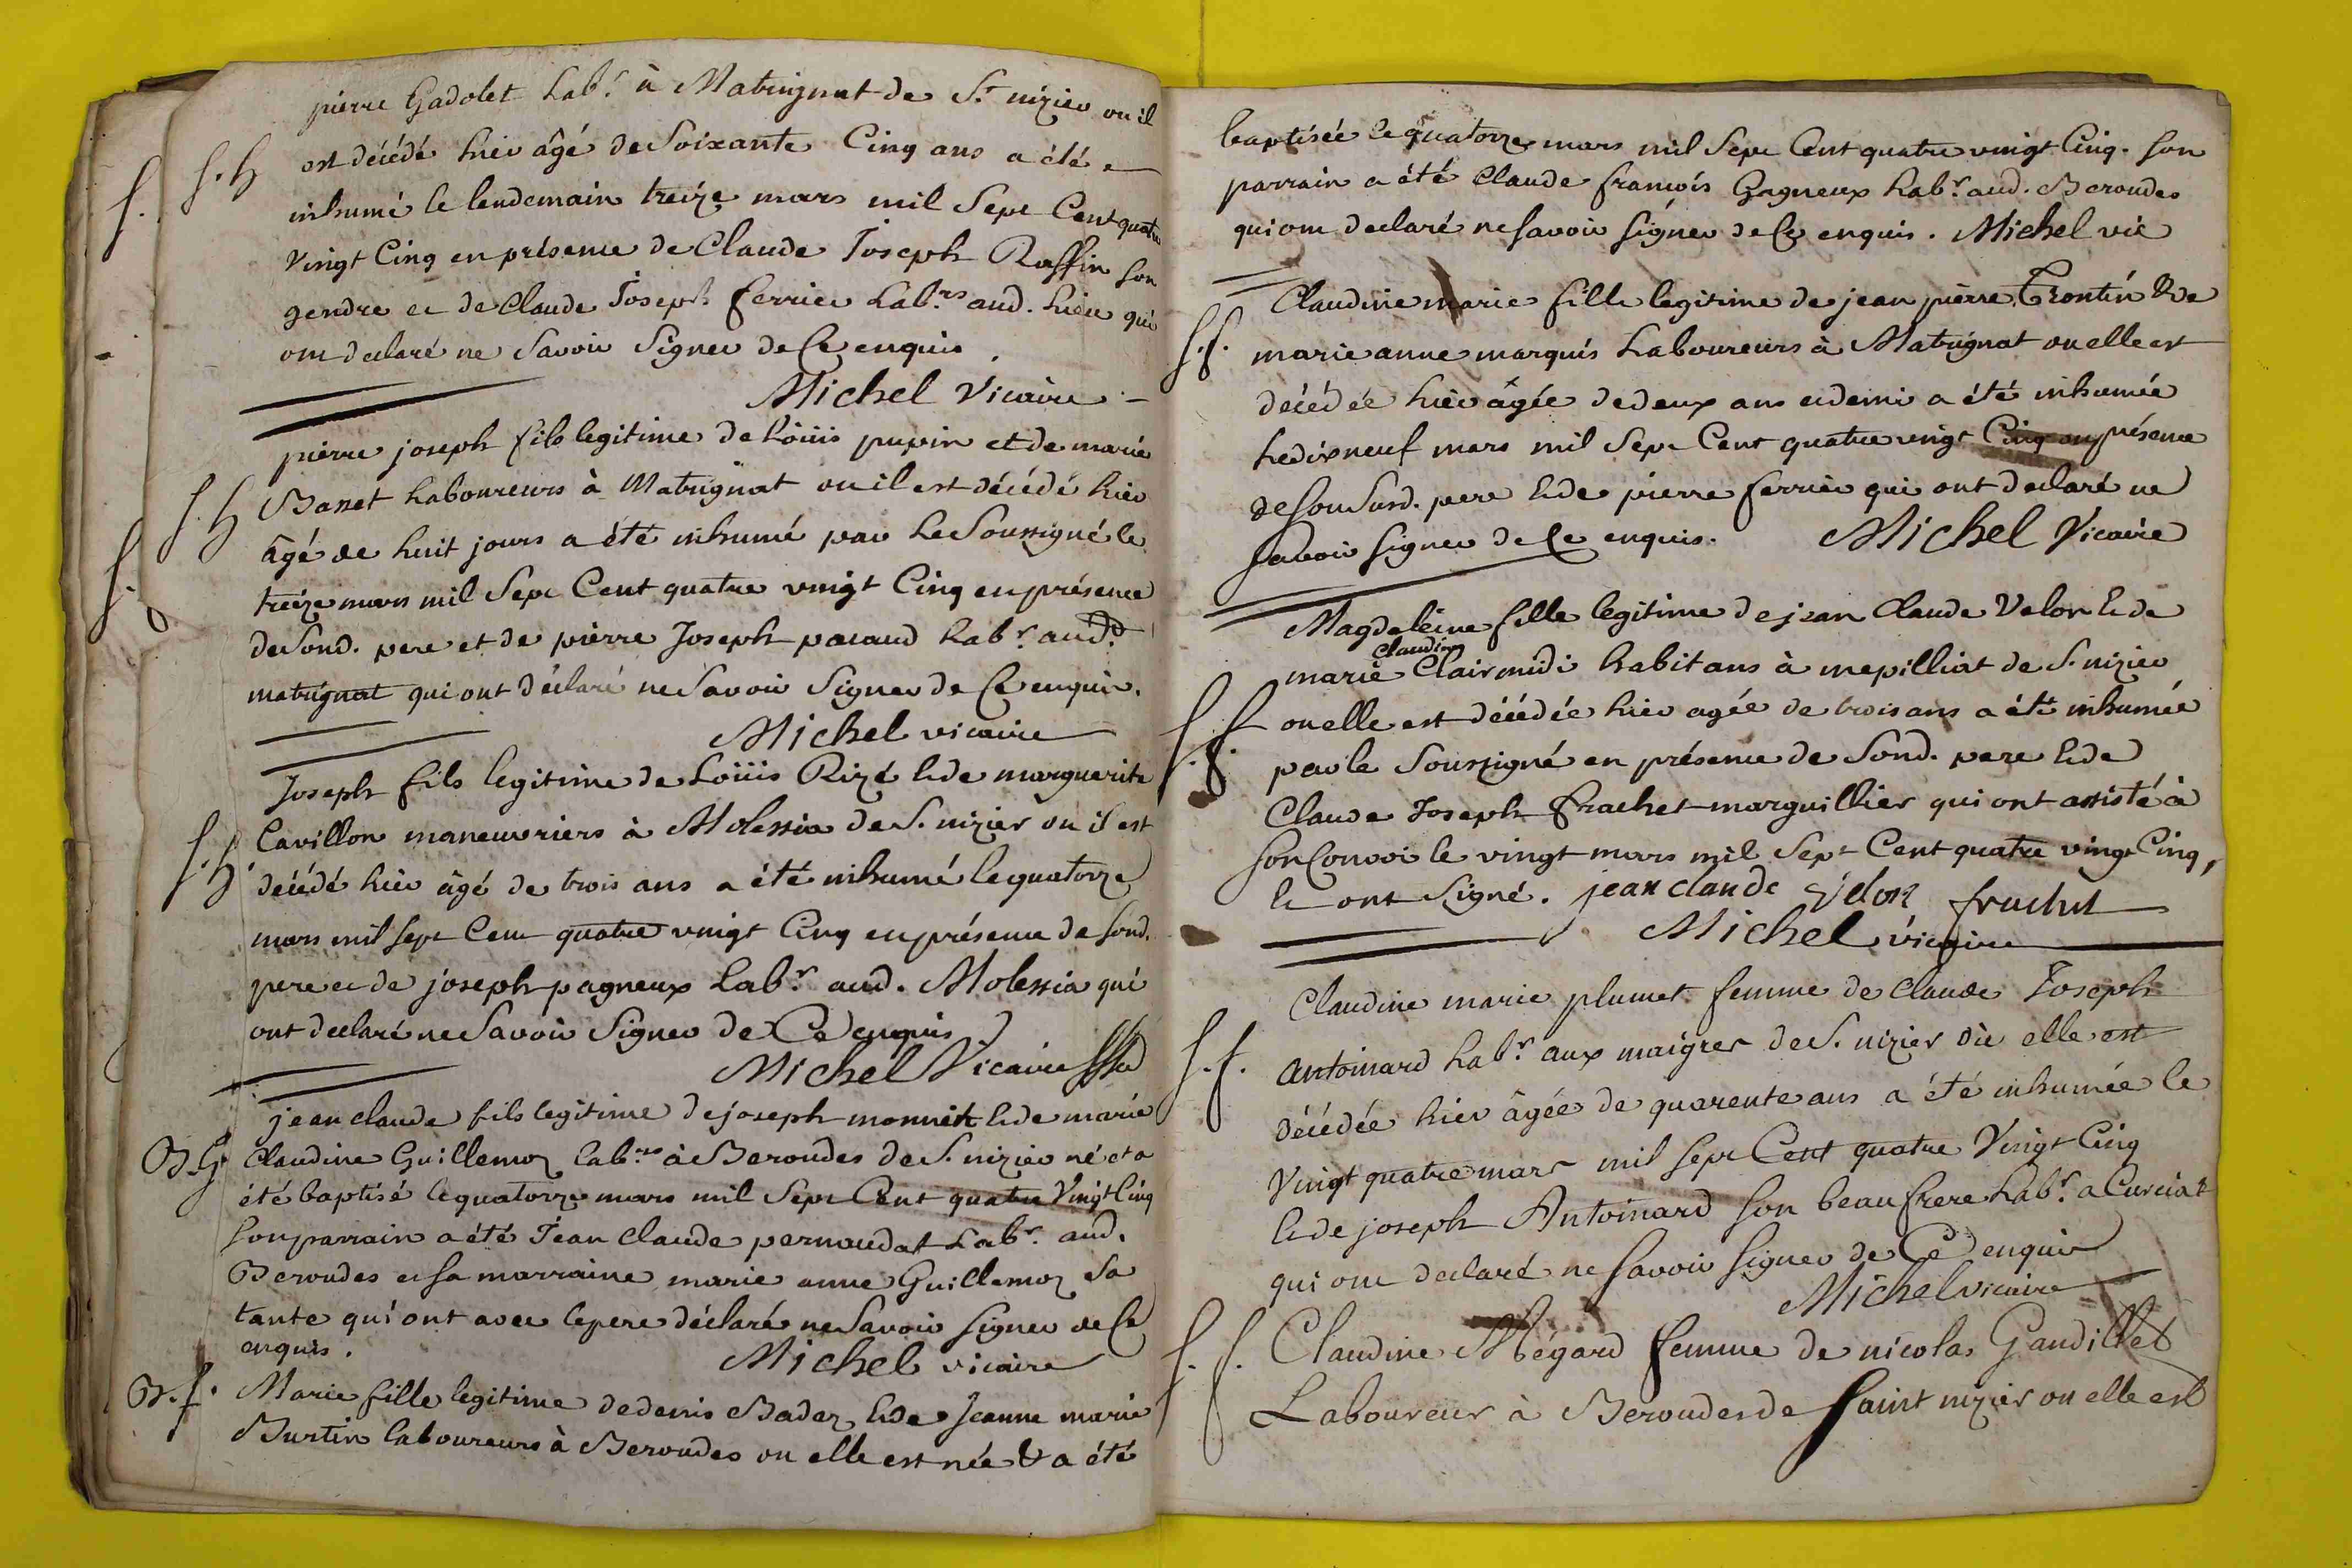 pierre Gadolet Lab.r à Matrignat de S.t nizier ou il
S. h est décédé hier âgé de Soixante Cinq ans a été
inhumé le lendemain treize mars mil Sept Cent quatre
Vingt Cinq en présence de Claude Joseph Raffin son
gendre et de Claude Joseph ferrier Lab.rs aud. lieu qui
ont declaré ne Savoir Signer de Ce enquis.
Michel Vicaire
pierre joseph fils legitime de Loüis pupin et de marie
S. h Basset Laboureurs à Matrignat ou il est décédé hier
âgé de huit jours a été inhumé par Le Soussigné le
treize mars mil Sept Cent quatre vingt Cinq en présence
de Sond. pere et de pierre Joseph pacaud Lab.r aud.
matrignat qui ont déclaré ne Savoir Signer de Ce enquis.
Michel vicaire
Joseph fils legitime de Loüis Rizé & de marguerite
S. h Cavillon maneuvriers à Molessia de S. nizier ou il est
décédé hier âgé de trois ans a été inhumé le quatorze
mars mil Sept Cent quatre vingt Cinq en présence de Sond.
pere et de joseph pagneux Lab.r aud. Molessia qui
ont declaré ne Savoir Signer de Ce enquis
Michel Vicaire
jean claude fils legitime de joseph monnet & de marie
B. G Claudine Guillemoz lab.rs à Beroudes de S. nizier né et a
été baptisé le quatorze mars mil Sept Cent quatre Vingt Cinq
Son parrain a été Jean Claude pernoudat Lab.r aud.
Beroudes et Sa marraine marie anne Guillemoz Sa
tante qui ont avec le pere déclaré ne Savoir Signer de Ce
enquis.
Michel vicaire
B. f. Marie fille legitime de denis Badez & de Jeanne marie
Burtin laboureurs à Beroudes ou elle est née & a été
baptisée le quatorze mars mil Sept Cent quatre vingt Cinq. Son
parrain a été Claude françois Gagneux Lab.r aud. Beroudes
qui ont declaré ne Savoir Signer de Ce enquis. Michel vic
Claudine marie fille legitime de jean pierre Trontin & de
S. f. marie anne marquis Laboureurs à Matrignat ou elle est
décédée hier âgée de deux ans et demi a été inhumée
Le dix neuf mars mil Sept Cent quatre vingt Cinq en présence
de Son Susd. pere & de pierre ferrier qui ont declaré ne
Savoir Signer de Ce enquis. Michel Vicaire
Magdeleine fille legitime de jean Claude Velon & de
Claudine
marie Clairmidi habitans à mepilliat de S. nizier
S. f. ou elle est décédée hier agée de trois ans a été inhumée
par le Soussigné en présence de Sond. pere & de
Claude Joseph frachet marguillier qui ont assisté à
Son Convoi le vingt mars mil Sept Cent quatre vingt Cinq,
& ont Signé. jean claude velon frachet
Michel vicaire
Claudine marie plumet femme de Claude Joseph
S. f. antoinard Lab.r aux maigres de S. nizier où elle est
décédée hier âgée de quarente ans a été inhumée le
Vingt quatre mars mil Sept Cent quatre Vingt Cinq
& de joseph Antoinard Son beau frere Lab.r a Curciat
qui ont declaré ne Savoir Signer de Ce enquis
Michel vicaire
S. f. Claudine Mégard femme de nicolas Gandillet
Laboureur à Beroudes de Saint nizier ou elle est